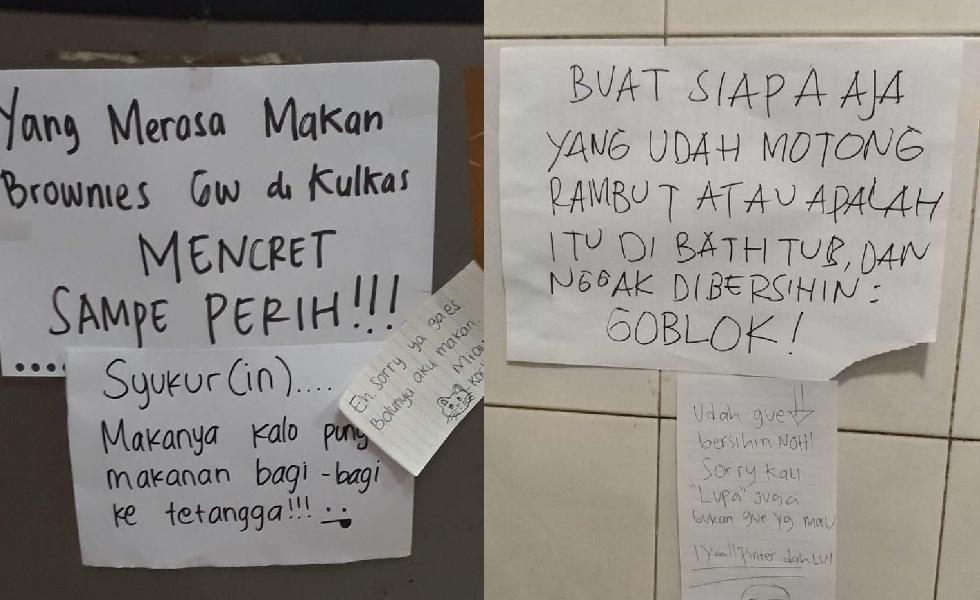 Yang Merasa Makan
Brownies Gw di Kulkas
MENCRET
SAMPE PERIH!!!
Syukur(in)....
Makanya kalo puny
makanan bagi-bagi
ke tetangga!!!
Eh, sorry ya gaes.
Bolunya aku makan.
Miau
BUAT SIAPA AJA
YANG UDAH MOTONG
RAMBUT ATAU APALAH
ITU DI BATHTUB, DAN
NGGAK DIBERSIHIN:
GOBLOK!
Udah gue
bersihin NOH!
Sorry kali
"Lupa" juga
bukan gue yg mau
! Yaall Pinter dah LU!